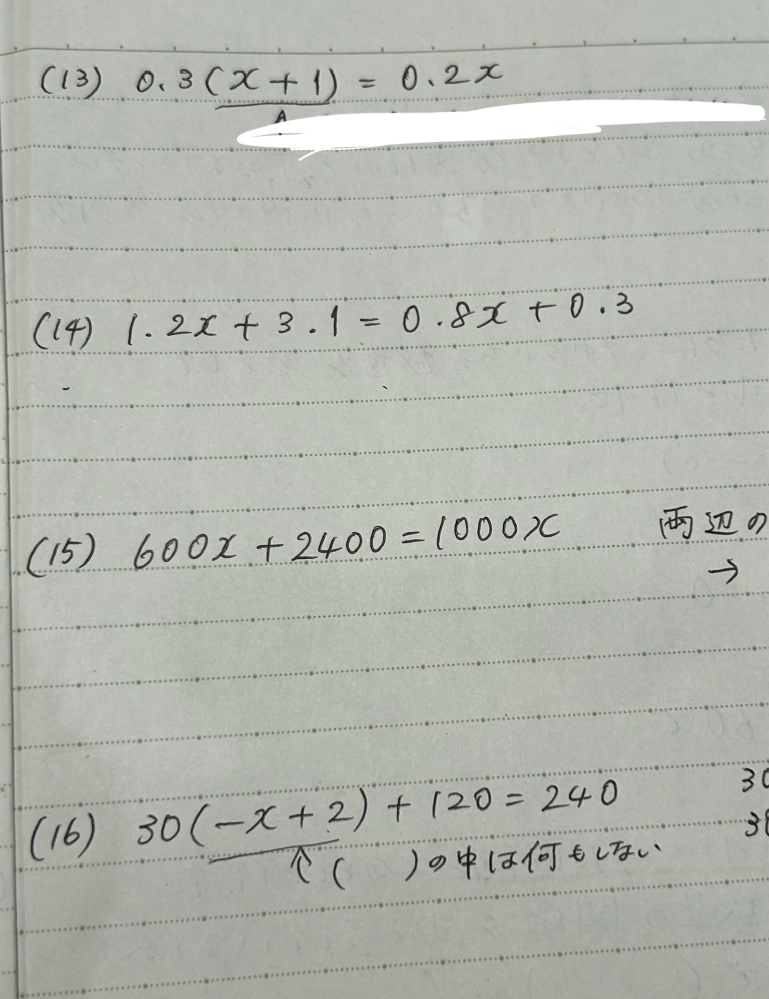 (13) 0.3(x+1) = 0.2x
(14) 1.2x + 3.1 = 0.8x + 0.3
(15) 600x + 2400 = 1000x 両辺の
→
(16) 30(-x+2) + 120 = 240 30
↑( )の中は何もしない